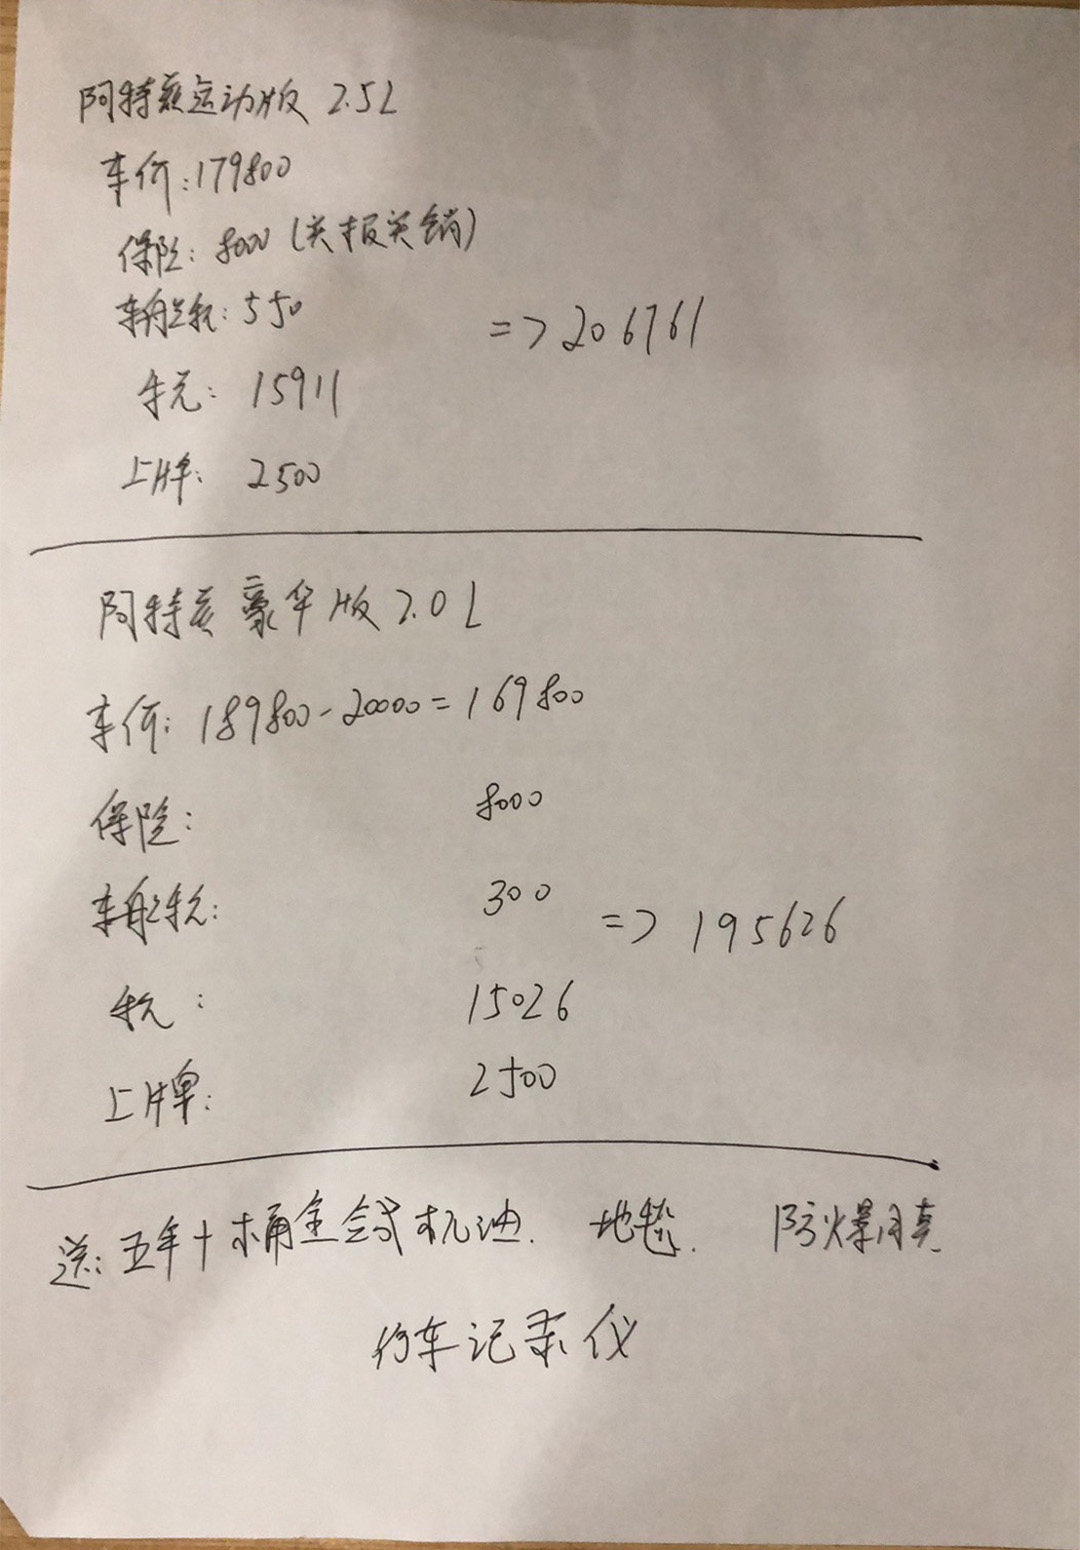 阿特兹运动版 2.5L
车价:179800
保险: 8000 (关报关销)
车船税: 550
=> 206761
税: 15911
上牌: 2500
阿特兹豪华版 2.0L
车价: 189800-20000=169800
保险: 8000
车船税: 300
=> 195626
税: 15026
上牌: 2500
送: 五年十桶全合成机油. 地毯. 防爆膜
行车记录仪